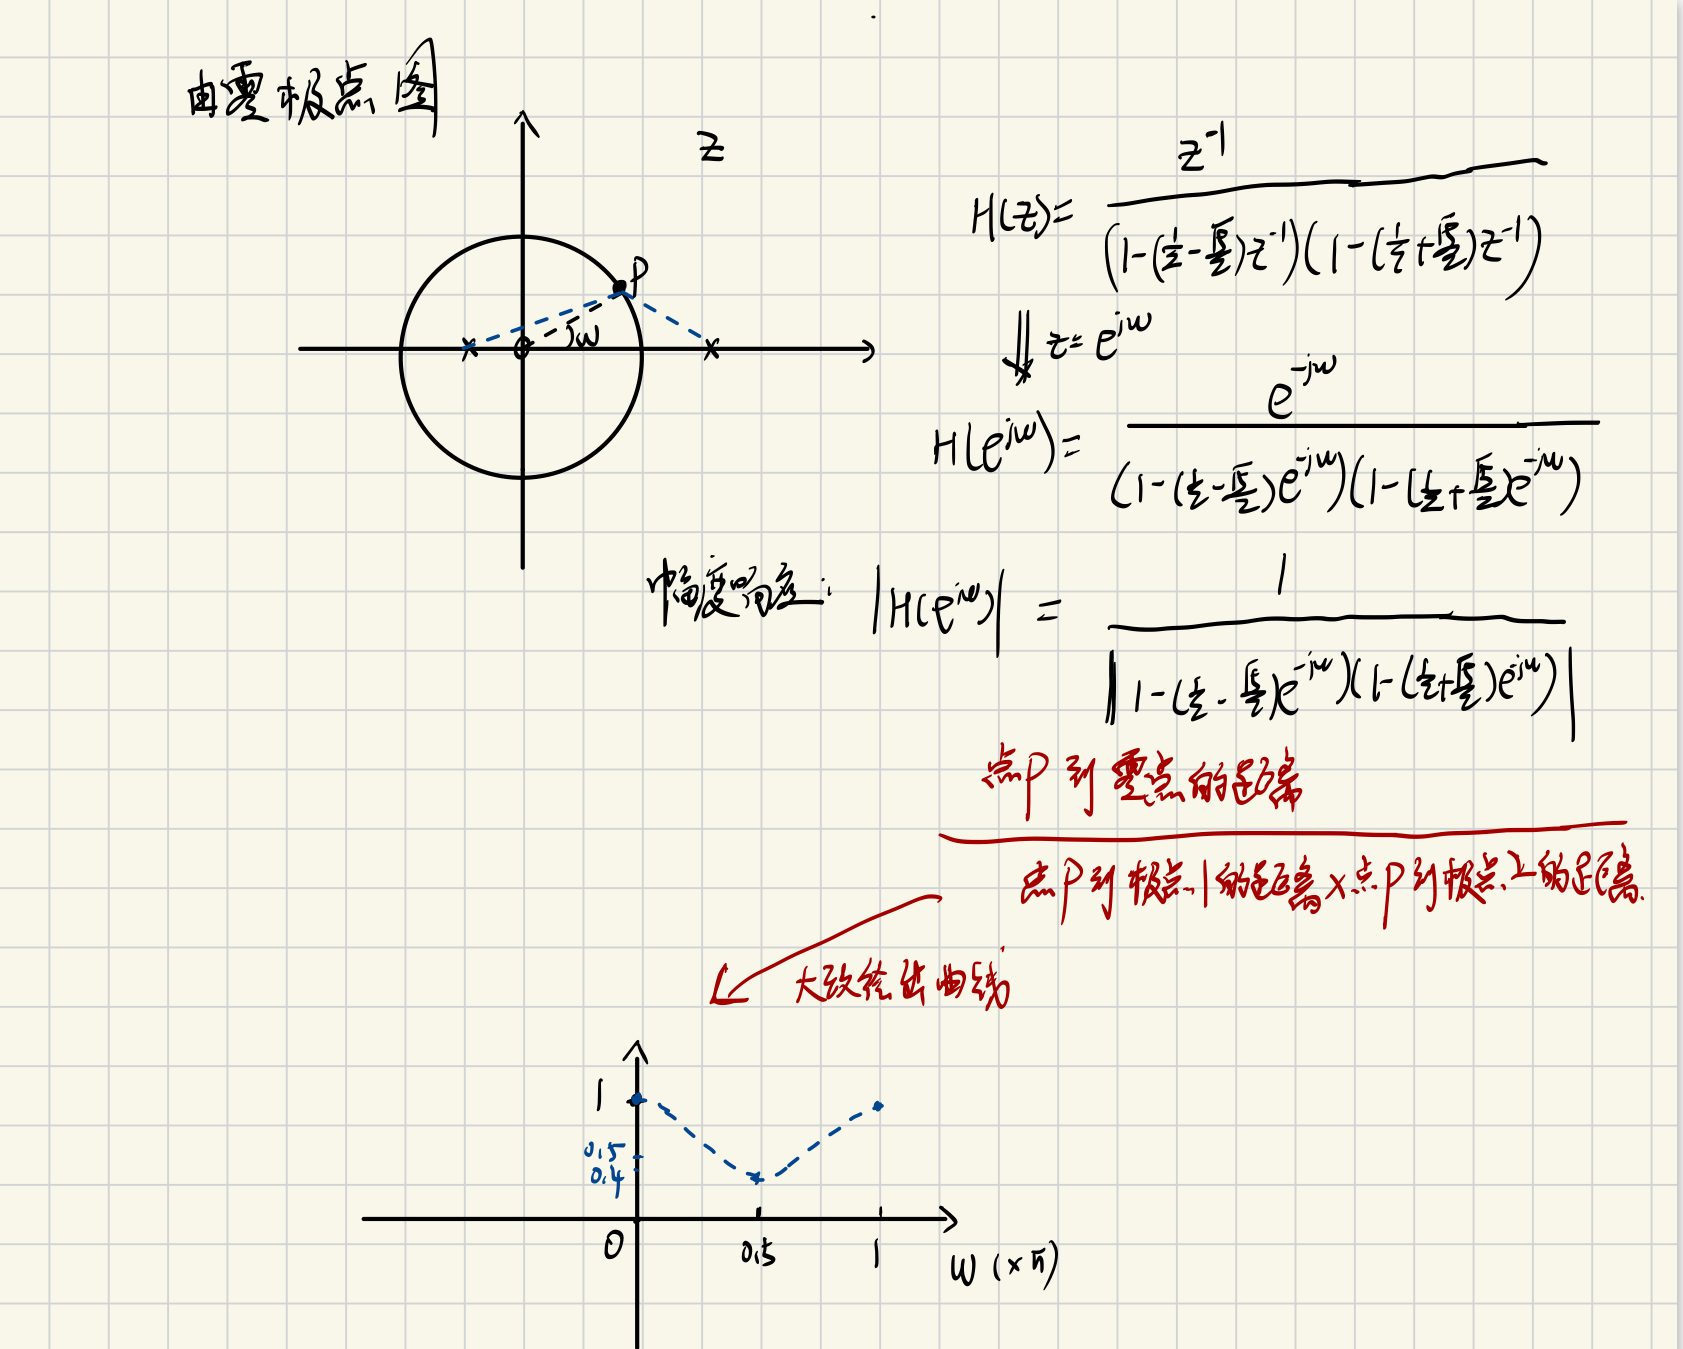 由零极点图
Z
P
jω
H(z)= z⁻¹ / (1-(1/2-√5/2)z⁻¹)(1-(1/2+√5/2)z⁻¹)
⇓ z=e^{jω}
H(e^{jω})= e^{-jω} / (1-(1/2-√5/2)e^{-jω})(1-(1/2+√5/2)e^{-jω})
幅度响应: |H(e^{jω})| = 1 / |1-(1/2-√5/2)e^{-jω})(1-(1/2+√5/2)e^{jω})|
点P到零点的距离
点P到极点1的距离×点P到极点2的距离.
大致绘出曲线
1
0.5
0.4
0 0.5 1 ω(×π)